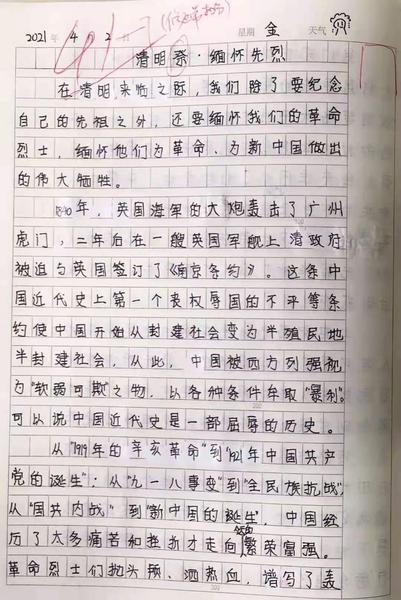 2021年 4 2 星期 金 天气
清明祭·缅怀先烈
在清明来临之际，我们除了要纪念
自己的先祖之外，还要缅怀我们的革命
烈士，缅怀他们为革命、为新中国做出
的伟大牺牲。
1840年，英国海军的大炮轰击了广州
虎门，二年后在一艘英国军舰上清政府
被迫与英国签订了《南京条约》。这条中
国近代史上第一个丧权辱国的不平等条
约使中国开始从封建社会变为半殖民地
半封建社会，从此，中国被西方列强视
为"软弱可欺"之物，以各种条件牟取"暴利"。
可以说中国近代史是一部屈辱的历史。
从"1919年的辛亥革命"到"1921年中国共产
党的诞生"；从"九一八事变"到"全民族抗战"，
从"国共内战"到"新中国的诞生"，中国经
历了太多痛苦和挫折才走向繁荣富强。
革命烈士们抛头颅、洒热血，谱写了轰